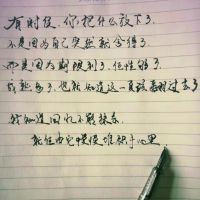 有时候,你把什么放下了
不是因为自己突然就舍得了
而是因为期限到了,任性够了
成熟多了,也就知道这一页该翻过去了
我知道回忆不能抹杀
就任由它慢慢堆积于心里